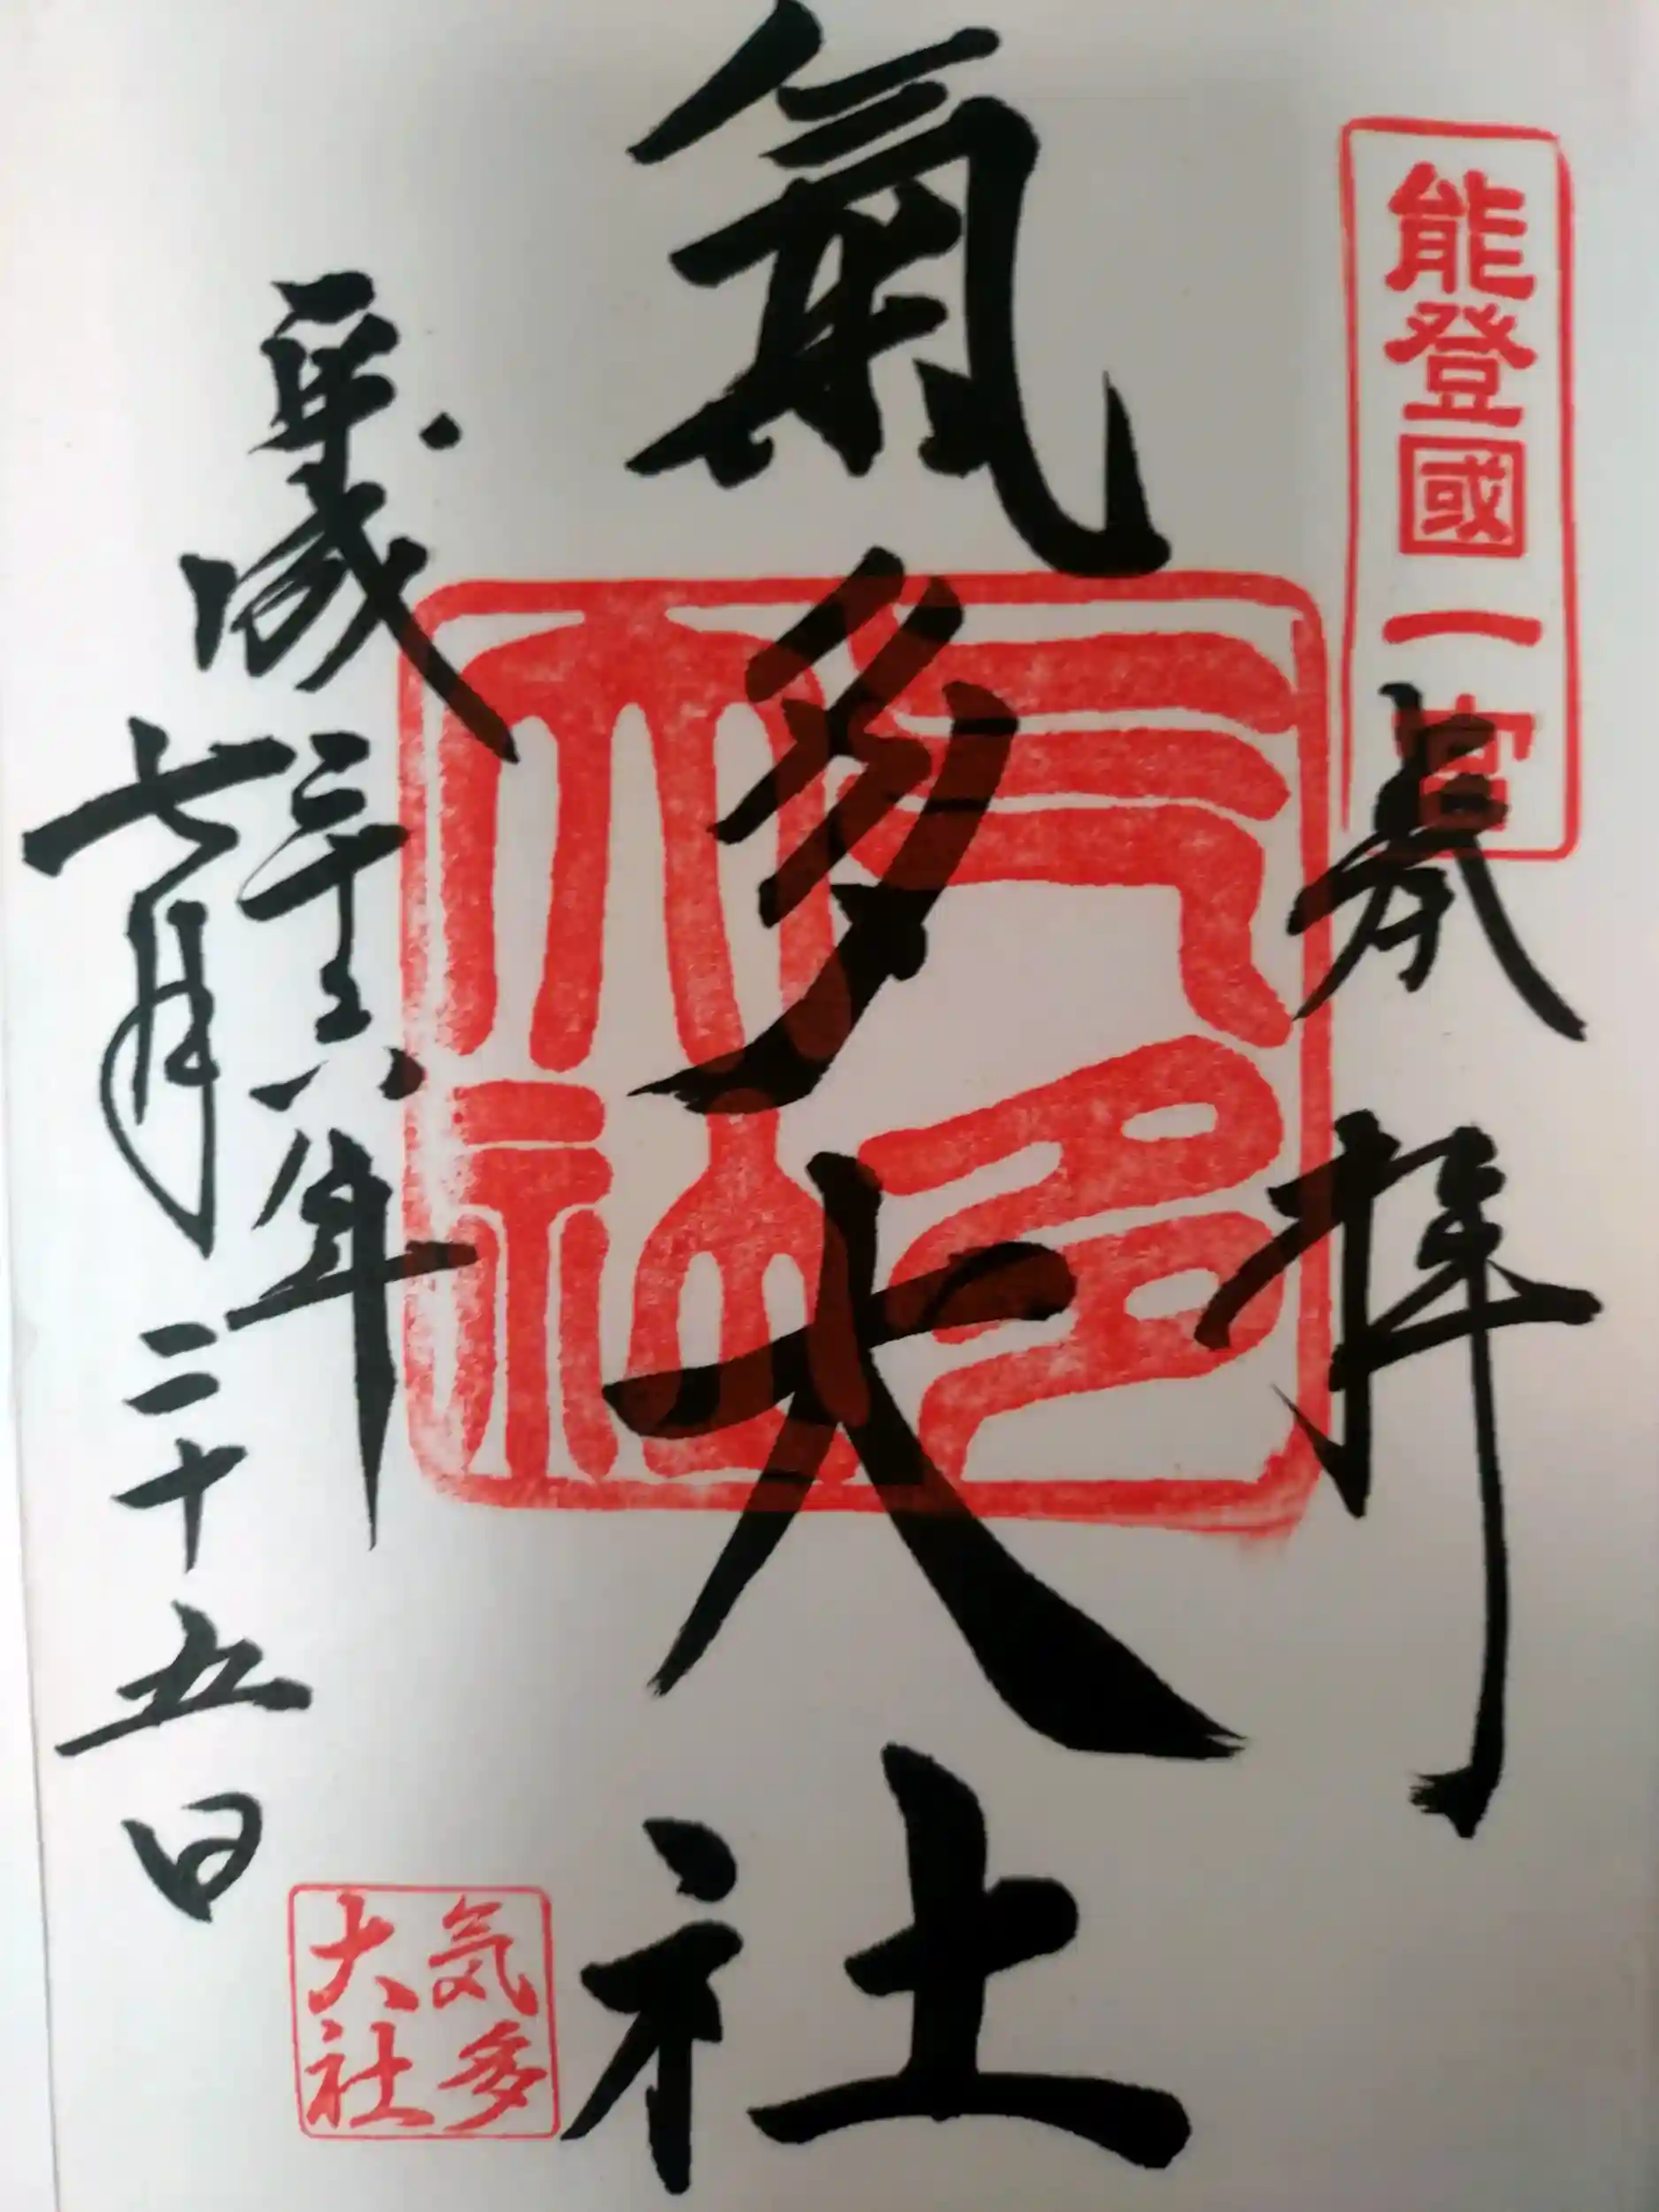 能登國一宮
奉拝
氣多大社
気多大社
平成二十六年
七月二十五日
気多
大社